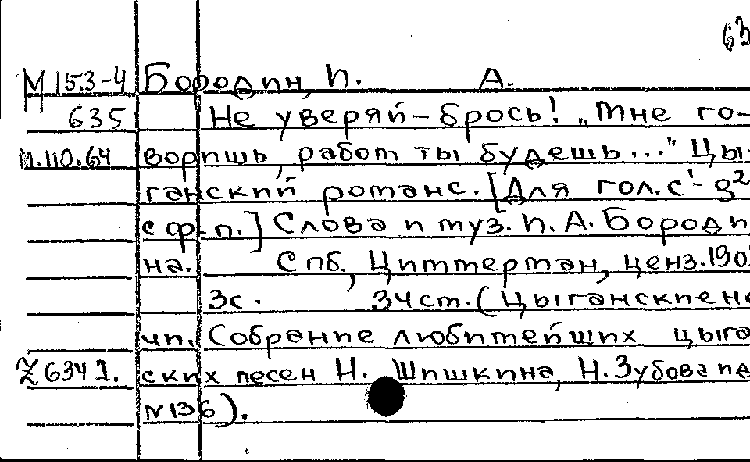 63
М 153-4 Бородин, П. А.
635 Не уверяй - брось! „Мне го-
п.110.64 воришь, работ ты будешь..." Цы-
ганский романс. [Для гол. c¹- g²
с ф.-п.] Слова и муз. П. А. Бороди
на. Спб, Циммерман, ценз. 190
3с. 34см. (Цыганские
чп. Собрание любимейших цыга
Z 634 I. ских песен Н. Шишкина, Н. Зубова
№ 136).